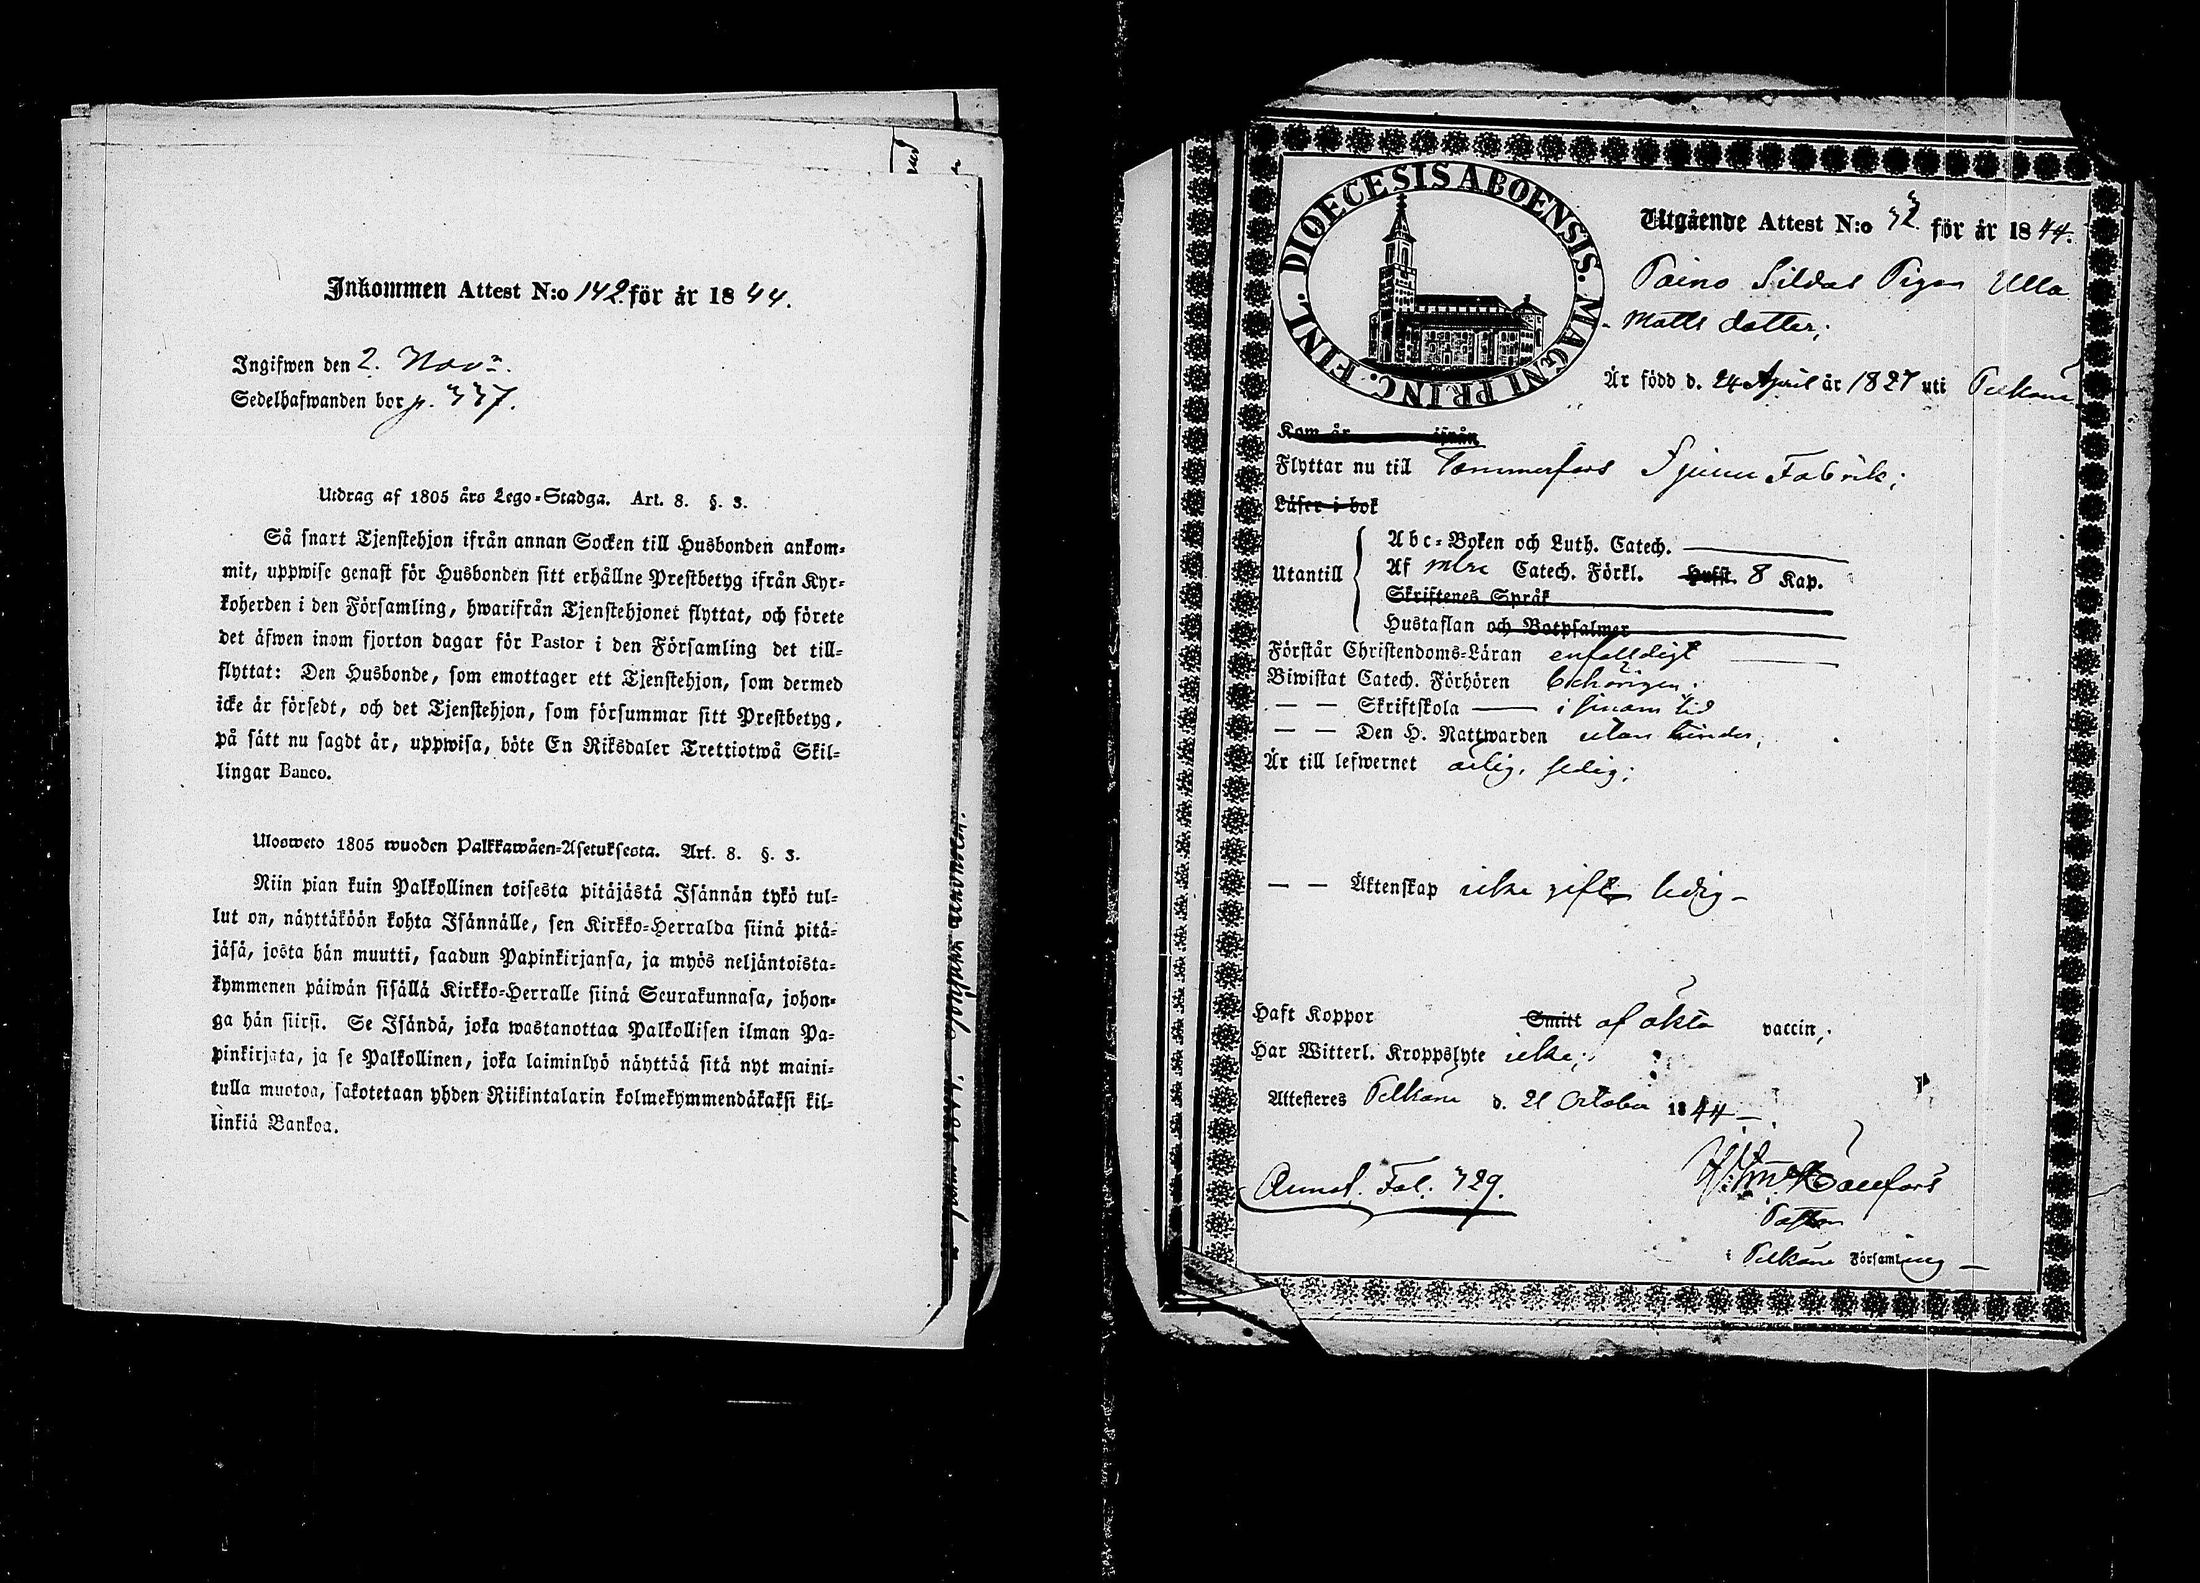 Inkommen Attest N:o 142. för år 1844.
Ingifwen den 2. Nov:
Sedelhafwanden bor p. 337.
Utdrag af 1805 års Lego-Stadga. Art. 8. §. 3.
Så snart Tjenstehjon ifrån annan Socken till Husbonden ankom-
mit, uppwise genast för Husbonden sitt erhållne Prestbetyg ifrån Kyr-
koherden i den Församling, hwarifrån Tjenstehjonet flyttat, och förete
det äfwen inom fjorton dagar för Pastor i den Församling det till-
flyttat: Den Husbonde, som emottager ett Tjenstehjon, som dermed
icke är försedt, och det Tjenstehjon, som försummar sitt Prestbetyg,
på sätt nu sagdt är, uppwisa, böte En Riksdaler Trettiotwå Skil-
lingar Banco.
Ulosweto 1805 wuoden Palkkawäen-Asetuksesta. Art. 8. §. 3.
Niin pian kuin Palkollinen toisesta pitäjästä Isännän tykö tul-
lut on, näyttäköön kohta Isännälle, sen Kirkko-Herralda siinä pitä-
jäsä, josta hän muutti, saadun Papinkirjansa, ja myös neljäntoista-
kymmenen päiwän sisällä Kirkko-Herralle siinä Seurakunnasa, johon-
ga hän siirsi. Se Isändä, joka wastanottaa Palkollisen ilman Pa-
pinkirjata, ja se Palkollinen, joka laiminlyö näyttää sitä nyt maini-
tulla muotoa, sakotetaan yhden Riikintalarin kolmekymmendäkaksi kil-
linkiä Bankoa.
DIOECESIS ABOENSIS. MAGNI PRINC. FINL.
Utgående Attest N:o för år 1844.
Paino Sildas Pigan Ulla
Matts dotter;
Är född d. 24 April år 1827 uti Pelkäne
Kom år ifrån
Flyttar nu till Tammerfors Spinn Fabrik;
Läser i bok
Utantill
Abc-Boken och Luth. Catech.
Af Catech. Förkl. Hufst. 8 Kap.
Skriftenes Språk
Hustaflan och Botpsalmer
Förstår Christendoms-Läran enfaldigt
Biwistat Catech. Förhören behörigen;
— — Skriftskola — i sinom tid
— — Den H. Nattwarden utan hinder;
Är till lefwernet ärlig, sedig;
— — Äktenskap icke gift ledig —
Haft Koppor Smitt af äkta vaccin;
Har Witterl. Kroppslyte icke;
Attesteres Pelkäne d. 21 October 1844 —
Annot. Fol. 329.
Pastor
i Pelkäne Församling —